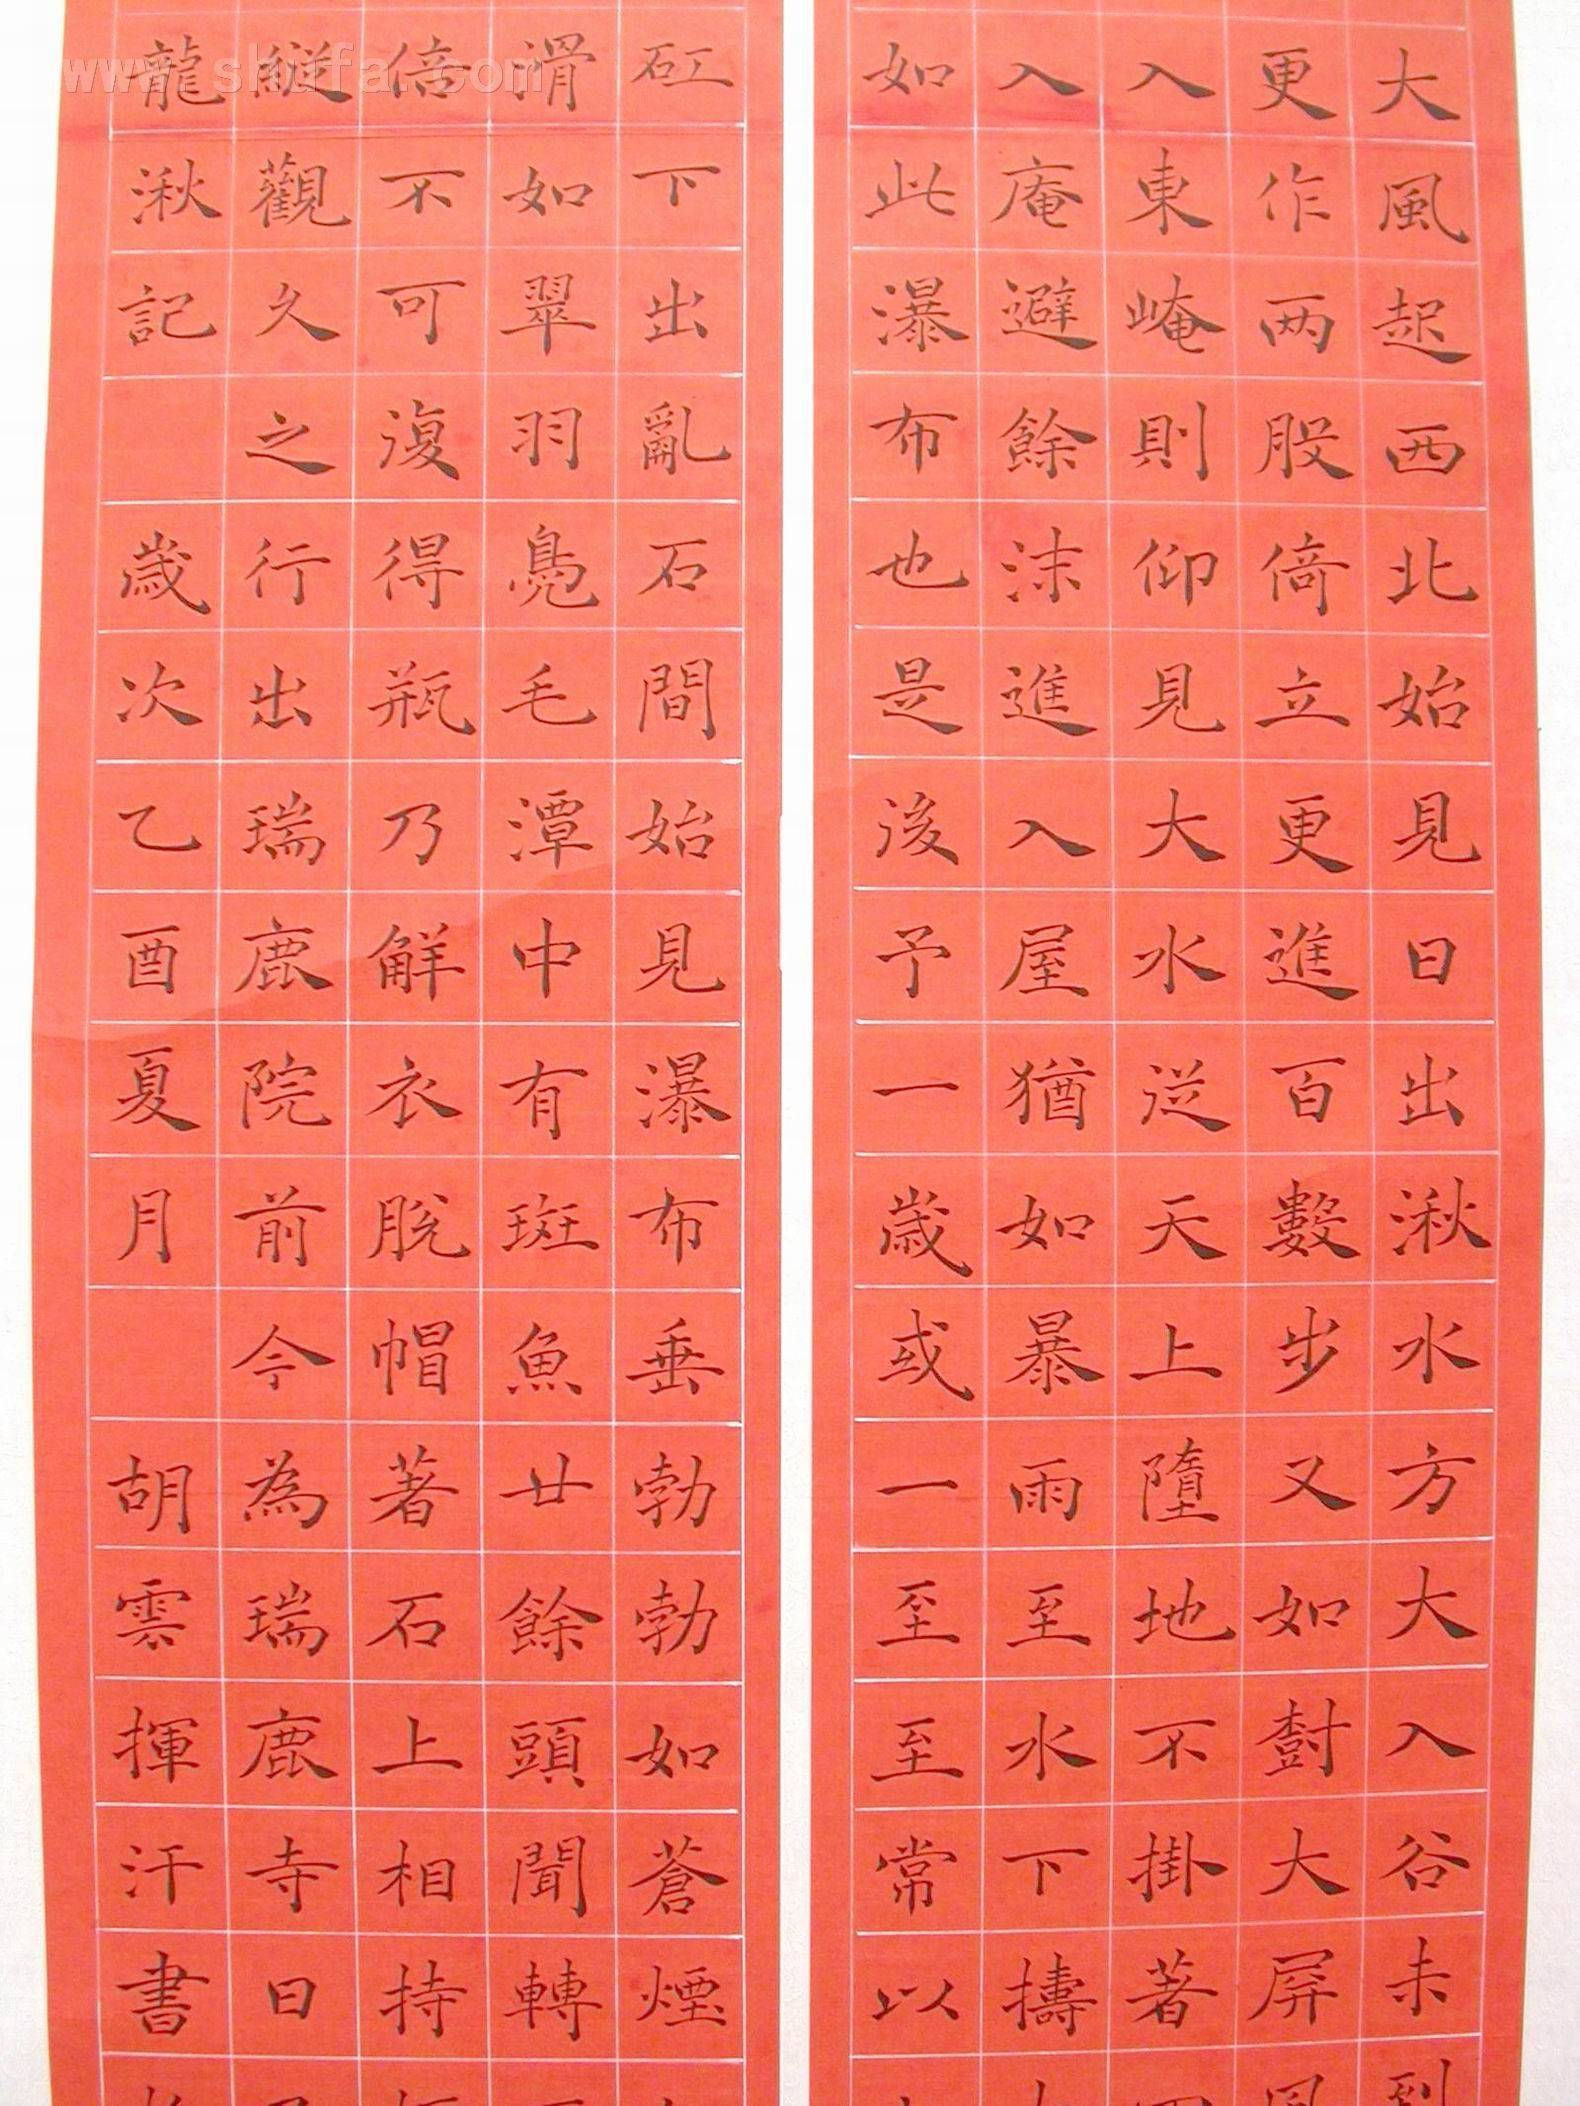 大風起西北始見日出湫水方大入谷未到
更作两股倚立更進百數步又如尌大屏風
入東崦則仰見大水從天上墮地不掛著
入庵避餘沫進入屋猶如暴雨至水下擣
如此瀑布也是後予一歲或一至至常以
矼下出亂石間始見瀑布垂勃勃如蒼煙
滑如翠羽鳧毛潭中有斑魚廿餘頭聞轉
倍不可復得瓶乃解衣脫帽著石上相持
縱觀久之行出瑞鹿院前今為瑞鹿寺曰
龍湫記 歲次乙酉夏月 胡雲揮汗書
www.shufa.com